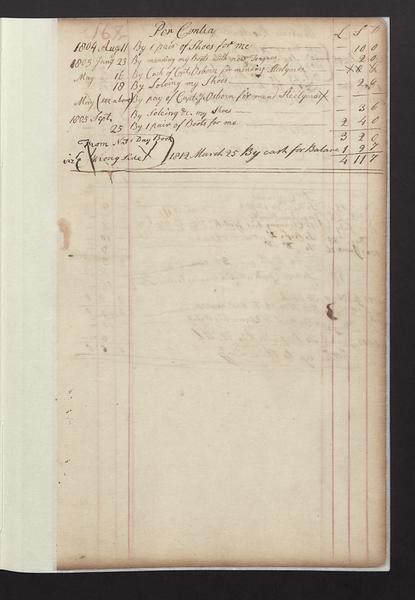 Per Contra £ S D
1804 Augt 11 By 1 pair of Shoes for me — 10 0
1805 Jany 23 By mending my boots with new — 2 0
May 16 By Cash of Captn Osborn for mending Steelyards
18 By Soleing my Shoes — 2
May (see above) By pay of Captn Osborn for mend Steelyards X
By Soleing &c. my Shoes — 3 6
1805 Sept. 25 By 1 pair of Boots for me 2 4 0
From No. 3 Day Book 3 2 0
viz (wrong side) 1812 March 25 By cash for Balance 1 9 7
4 11 7